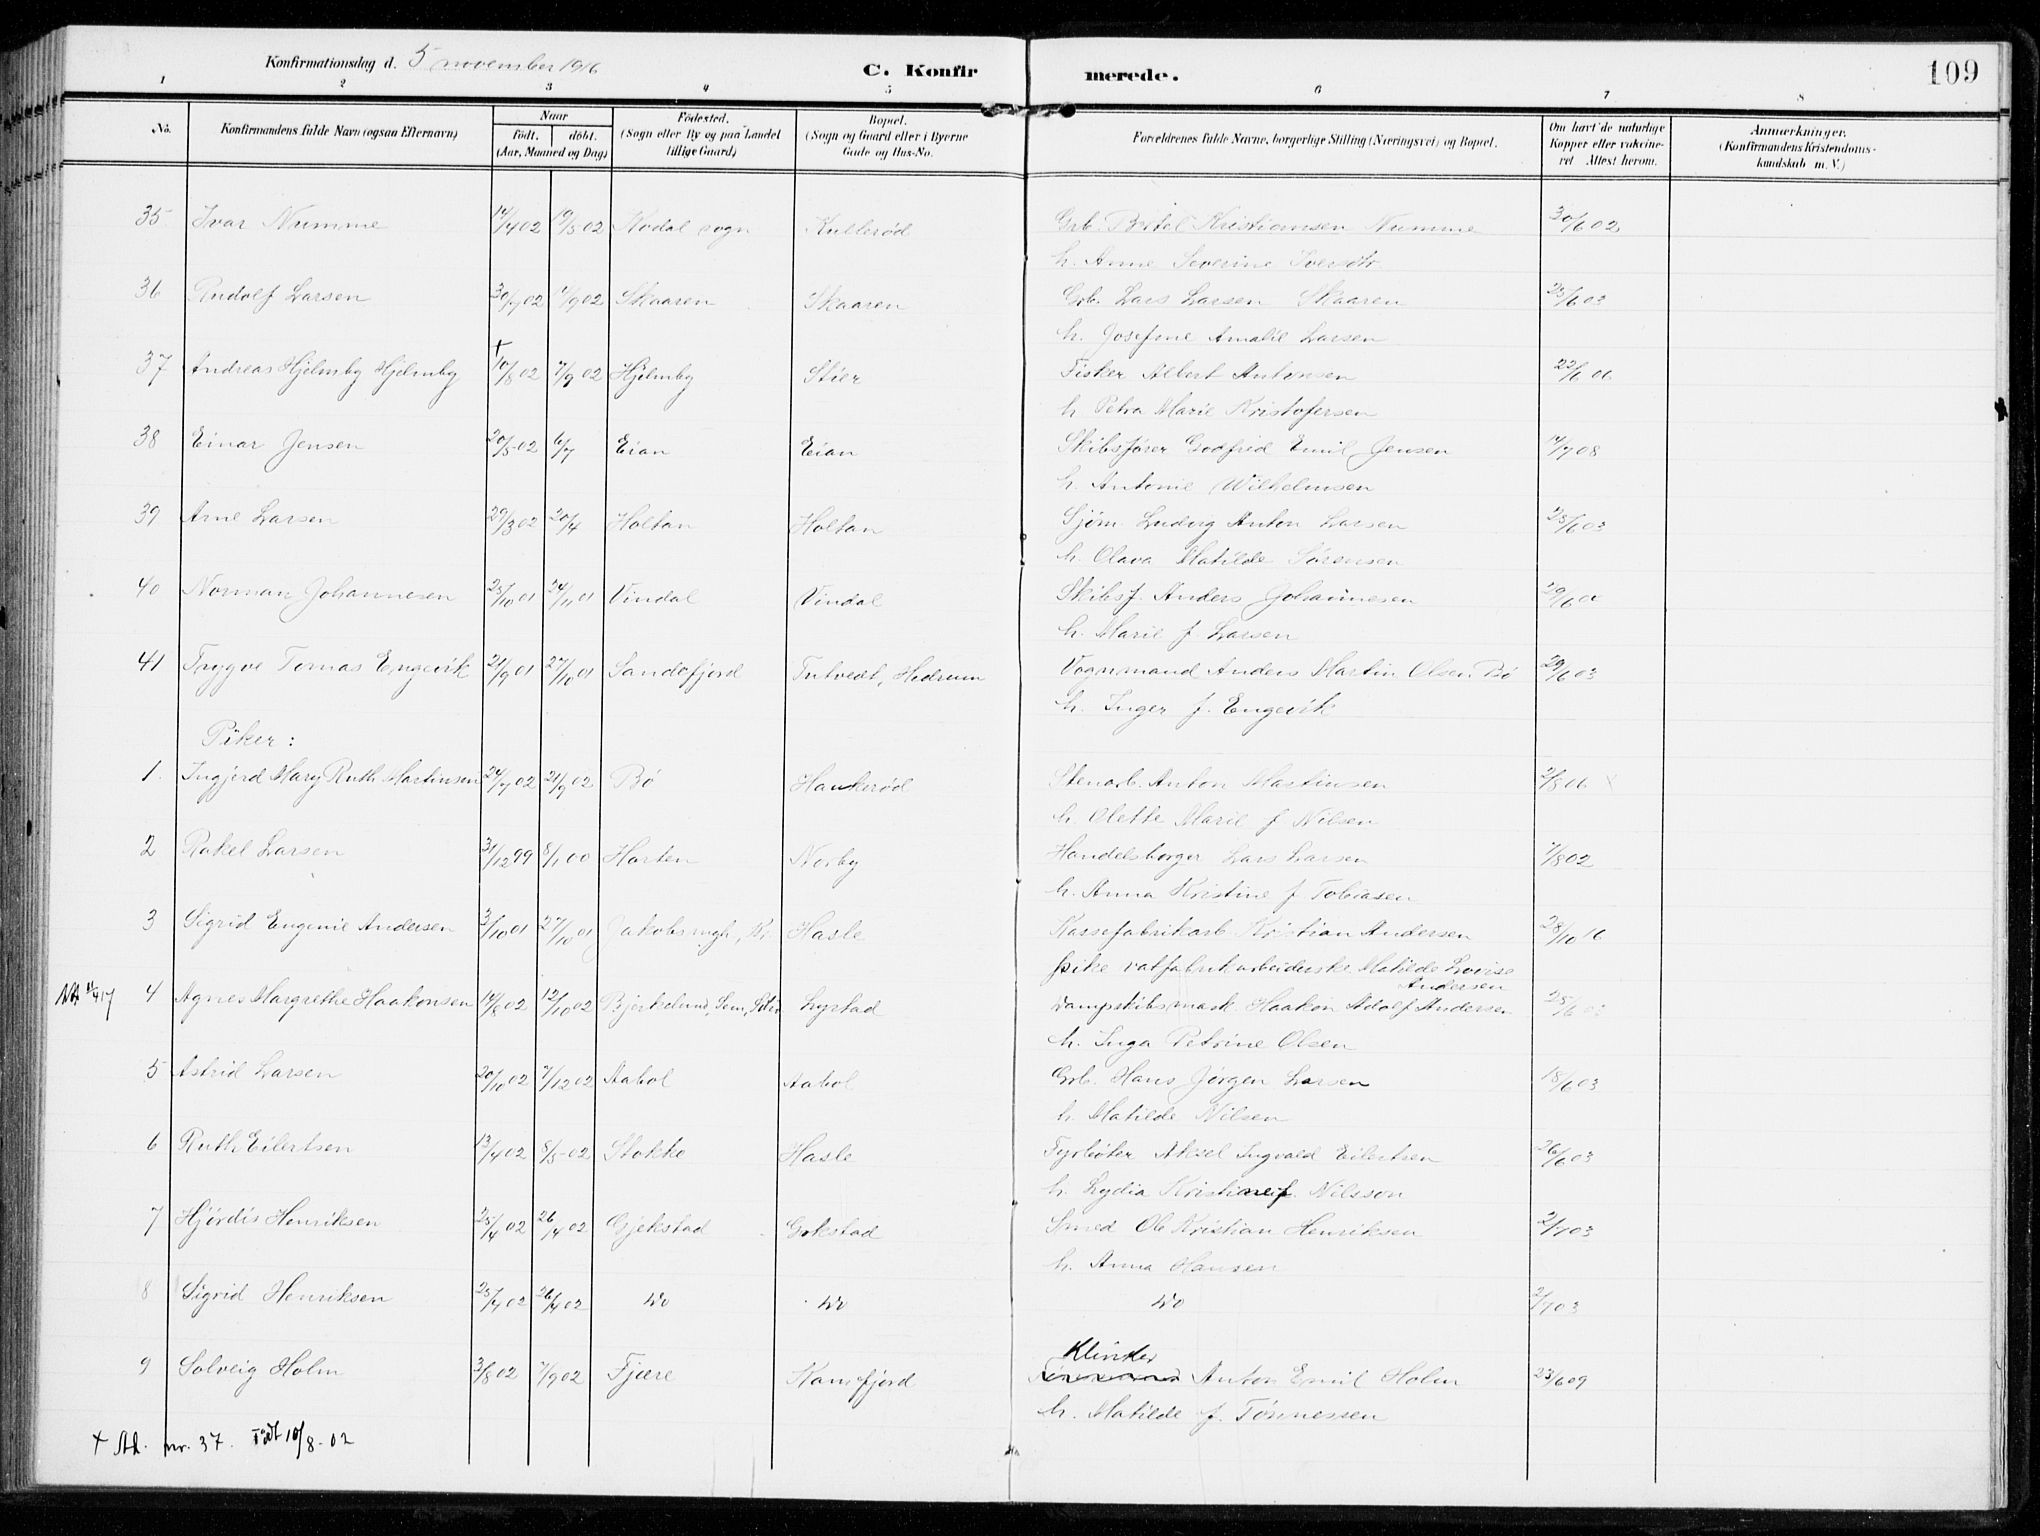 Konfirmationsdag d. 5 november 1916
C. Konfirmerede.
109
1 2 3 4 5 6 7 8
No. Konfirmandens fulde Navn (ogsaa Efternavn) Naar født. døbt. (Aar, Maaned og Dag) Fødested. (Sogn eller By og paa Landet tillige Gaard) Bopæl. (Sogn og Gaard eller i Byerne Gade og Hus-No. Forældrenes fulde Navne, borgerlige Stilling (Næringsvei) og Bopæl. Om havt de naturlige Kopper eller vaksineret Attest herom. Anmærkninger. (Konfirmandens Kristendomskundskab m. V.)
35 Ivar Numme 14/4 02 19/5 02 Kodal sogn Kullerød Grb. Bertel Kristiansen Numme 30/6 02
h. Anne Severine Iversdtr.
36 Rudolf Larsen 30/7 02 /9 02 Skaaren Skaaren Grb. Lars Larsen Skaaren 25/6 03
h. Josefine Amalie Larsen
37 Andreas Hjelmby Hjelmby + 10/8 02 7/9 02 Hjelmby Støer Fisker Albert Antonsen 22/6 06
h. Petra Marie Kristofersen
38 Einar Jensen 20/5 02 6/7 Eian Eian Skibsfører Godfred Emil Jensen 14/7 08
h. Antonie Wilhelmsen
39 Arne Larsen 29/3 02 20/4 Holtan Holtan Sjøm. Ludvig Anton Larsen 25/6 03
h. Olava Matilde Sørensen
40 Norman Johannesen 23/10 01 24/11 01 Vindal Vindal Skibsf. Anders Johannesen 29/6
h. Marie f. Larsen
41 Trygve Tomas Engevik 21/9 01 27/10 01 Sandefjord Tutvedt, Hedrum Vognmand Anders Martin Olsen Bø 29/6 03
h. Inger f. Engevik
Piker:
1. Ingjerd Mary Ruth Martinsen 24/7 02 21/9 02 Bø Haukerød Stenarb. Anton Martinsen 2/8 06
h. Olette Marie f Nilsen
2 Rakel Larsen 31/12 99 8/1 00 Horten Norby Handelsborger Lars Larsen 7/8 02
h. Anna Kristine f Tobiasen
3 Sigrid Eugenie Andersen 3/10 01 27/10 01 Jakobs mgh, Kr. Hasle Kassefabrikarb Kristian Andersen 28/10 16
pike vatfabrikarbeiderske Matilde Lovise
Andersen
4 Agnes Margrethe Haakonsen 14/8 02 12/10 02 Bjerkelund, Sem, Lystad Dampskibsmask. Haakon Adolf Andersen 25/6 03
h. Inga Petrine Olsen
5 Astrid Larsen 20/10 02 7/12 02 Aabol Aabol Grb. Hans Jørgen Larsen 18/6 03
h. Matilde Nilsen
6 Ruth Eilertsen 13/4 02 8/5 02 Stokke Hasle Fyrbøter Aksel Ingvald Eilertsen 26/6 03
h. Lydia Kristine f. Nilsson
7 Hjördis Henriksen 25/4 02 26/4 02 Gjekstad Gokstad Smed Ole Kristian Henriksen 2/7 03
h. Anna Hansen
8 Sigrid Henriksen 25/4 02 26/4 02 do do do 2/7 03
Klinker
9 Solveig Holm 3/8 02 7/9 02 Fjære Kamfjord Anton Emil Holm 23/6 09
h. Matilde f. Tönnessen
+ nr. 37. Født 10/8-02